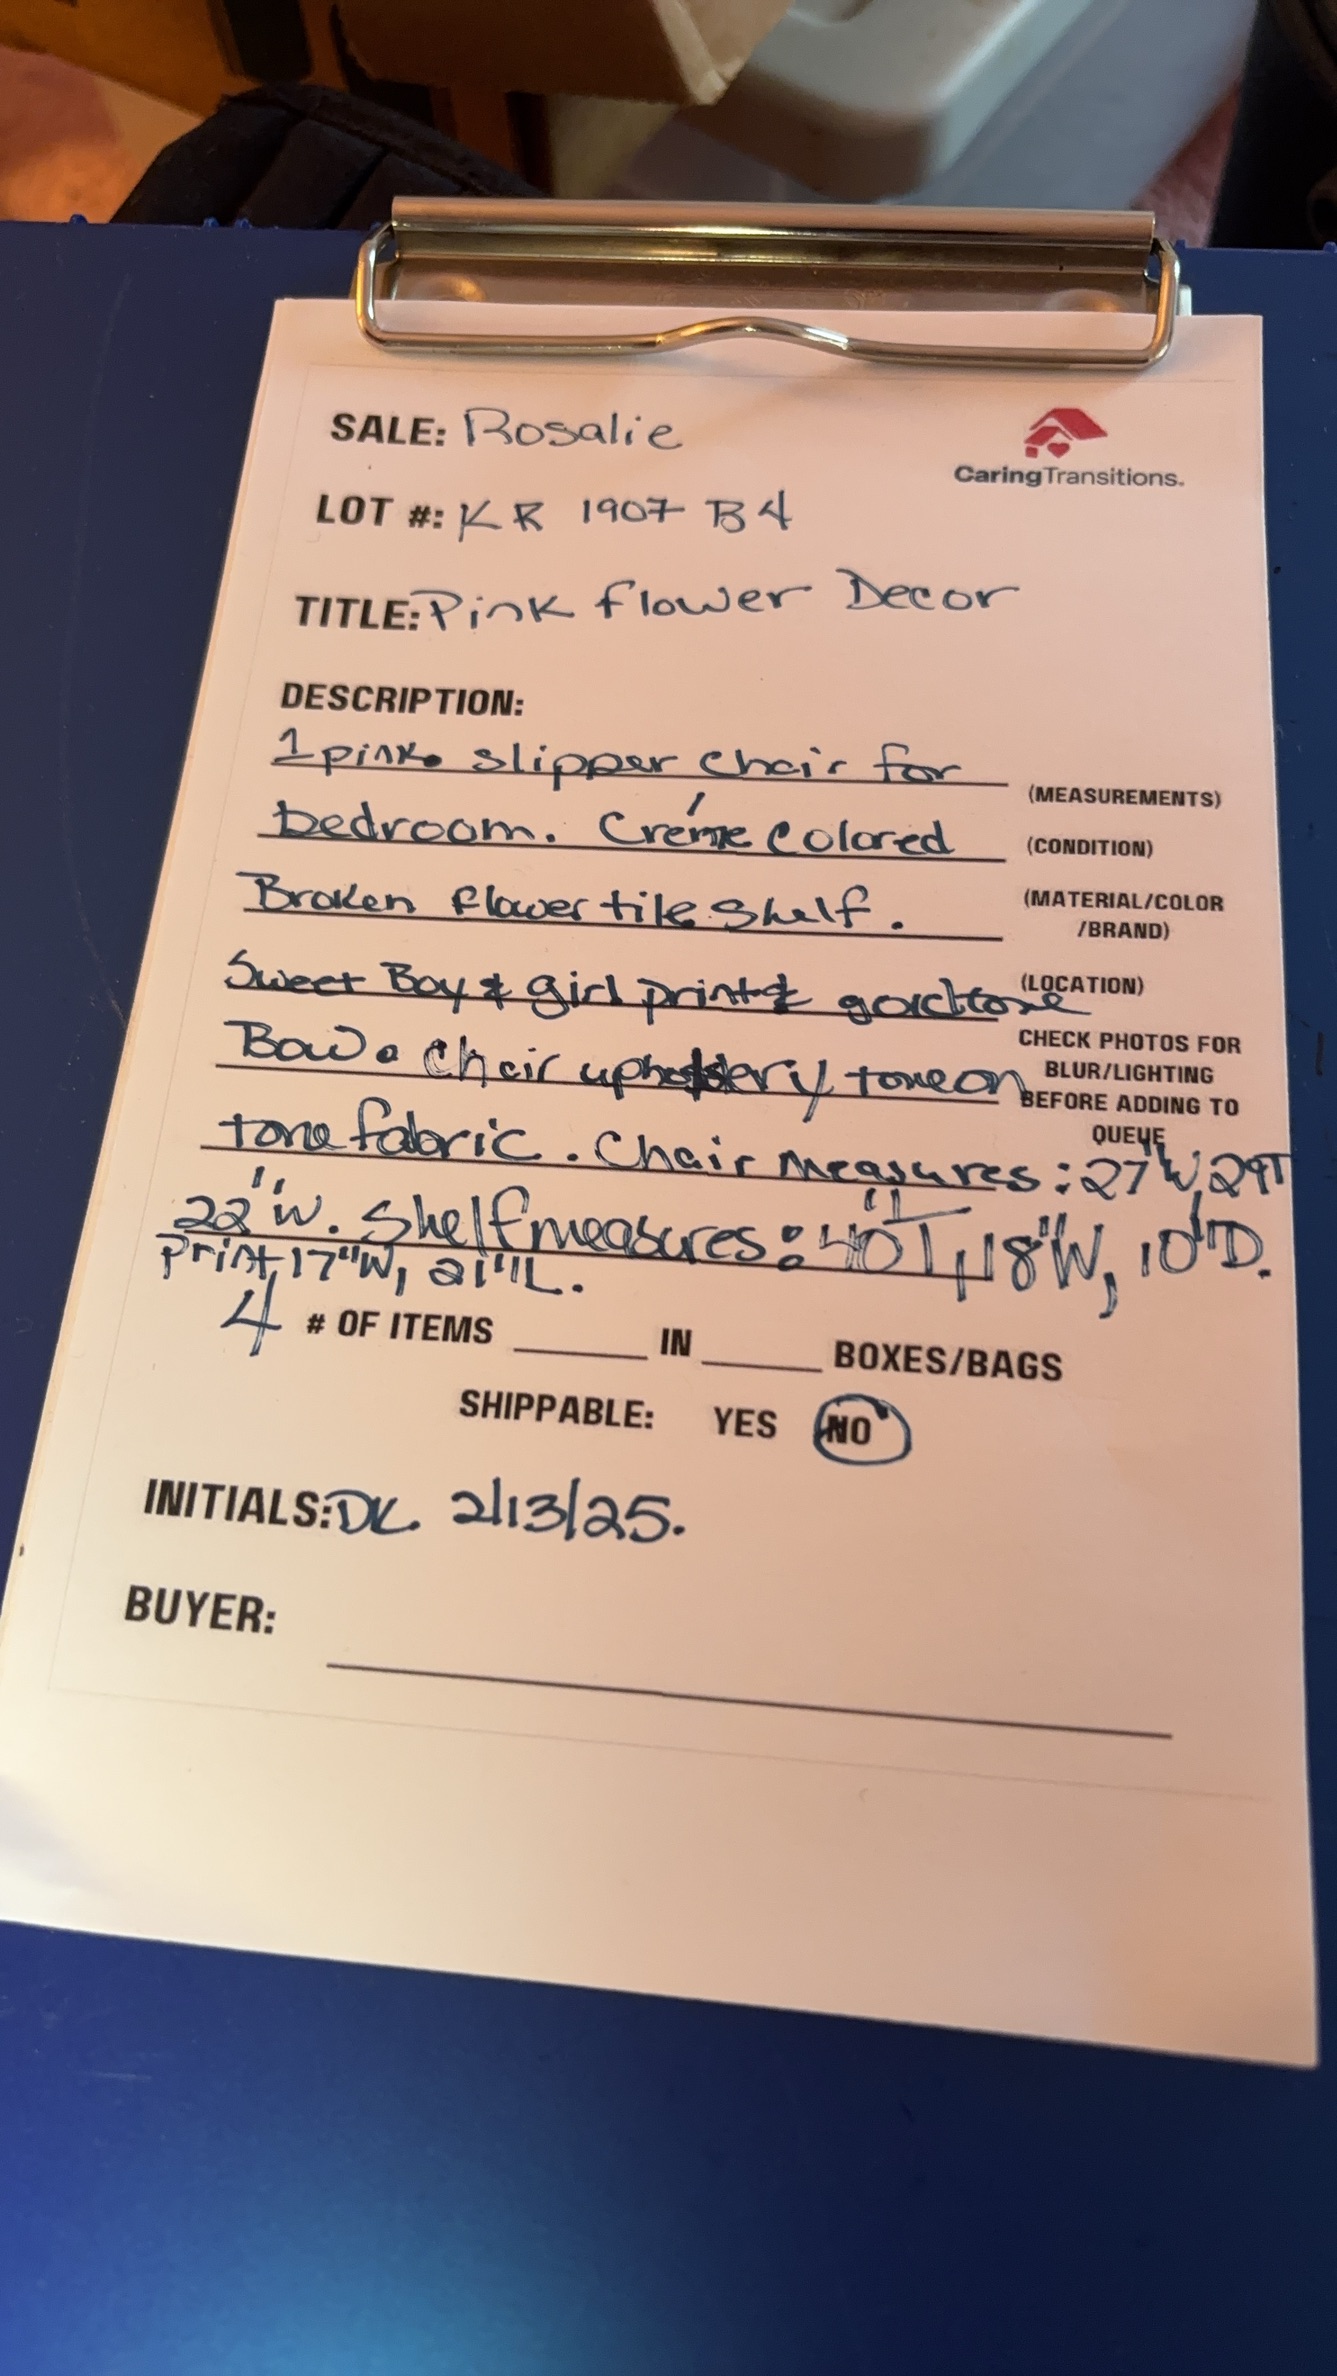 SALE: Rosalie
CaringTransitions.
LOT #: KR 1907 B4
TITLE: Pink flower Decor
DESCRIPTION:
1 pink slipper chair for
(MEASUREMENTS)
bedroom. Créme colored
(CONDITION)
Broken flower tile shelf.
(MATERIAL/COLOR
/BRAND)
Sweet Boy & girl print &
(LOCATION)
CHECK PHOTOS FOR
Bow. Chair upholstery tone on
BLUR/LIGHTING
BEFORE ADDING TO
QUEUE
tone fabric. Chair measures: 27"W, 29T
22"W. Shelf measures: 40"T, 18"W, 10"D.
print, 17"W, 21"L.
4 # OF ITEMS ____ IN ____ BOXES/BAGS
SHIPPABLE: YES NO
INITIALS: DK. 2/13/25.
BUYER: